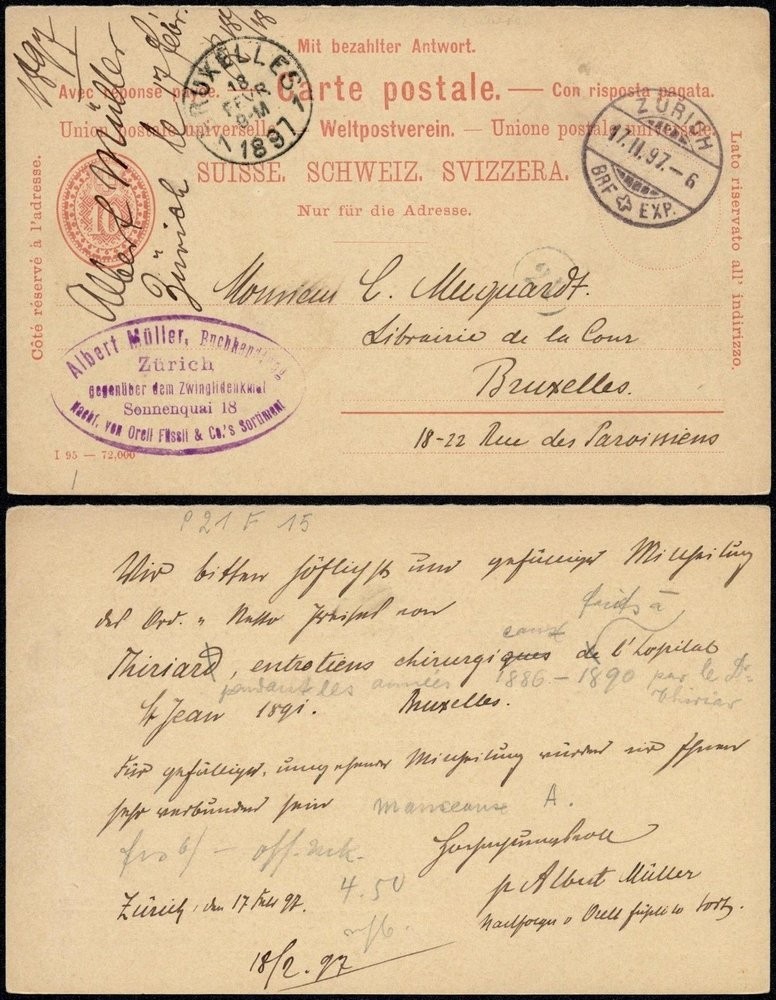 Mit bezahlter Antwort.
Avec réponse payée. — Carte postale. — Con risposta pagata.
Union postale universelle. — Weltpostverein. — Unione postale universale.
SUISSE. SCHWEIZ. SVIZZERA.
Nur für die Adresse.
Côté réservé à l'adresse.
Lato riservato all' indirizzo.
10
1897
Albert Müller
Zürich le 17 Febr.
BRUXELLES 1
18
FEVR
8-M
1897
ZÜRICH
17.II.97.-6
BRF EXP.
Monsieur C. Muquardt.
Librairie de la Cour
Bruxelles.
18-22 Rue des Paroissiens
Albert Müller, Buchhandlung
Zürich
gegenüber dem Zwinglidenkmal
Sonnenquai 18
Nachf. von Orell Füssli & Co.'s Sortiment
I 95 — 72,000
P 21 F 15
Wir bitten höflichst um gefälliger Mittheilung
des Ord. u Netto Preises von
faits à
Thiriard, entretiens chirurgiques de l'hopital
caux
pendant les années 1886-1890 par le Dr
Thiriar
St Jean 1891. Bruxelles.
Für gefälliger, umgehender Mittheilung würden wir Ihnen
sehr verbunden sein
Manceaux A.
frs 6/-
4.50
Hochachtungsvoll
p Albert Müller
Zürich, den 17 Febr 97.
Nachfolger v Orell füssli & Sort.
18/2.97